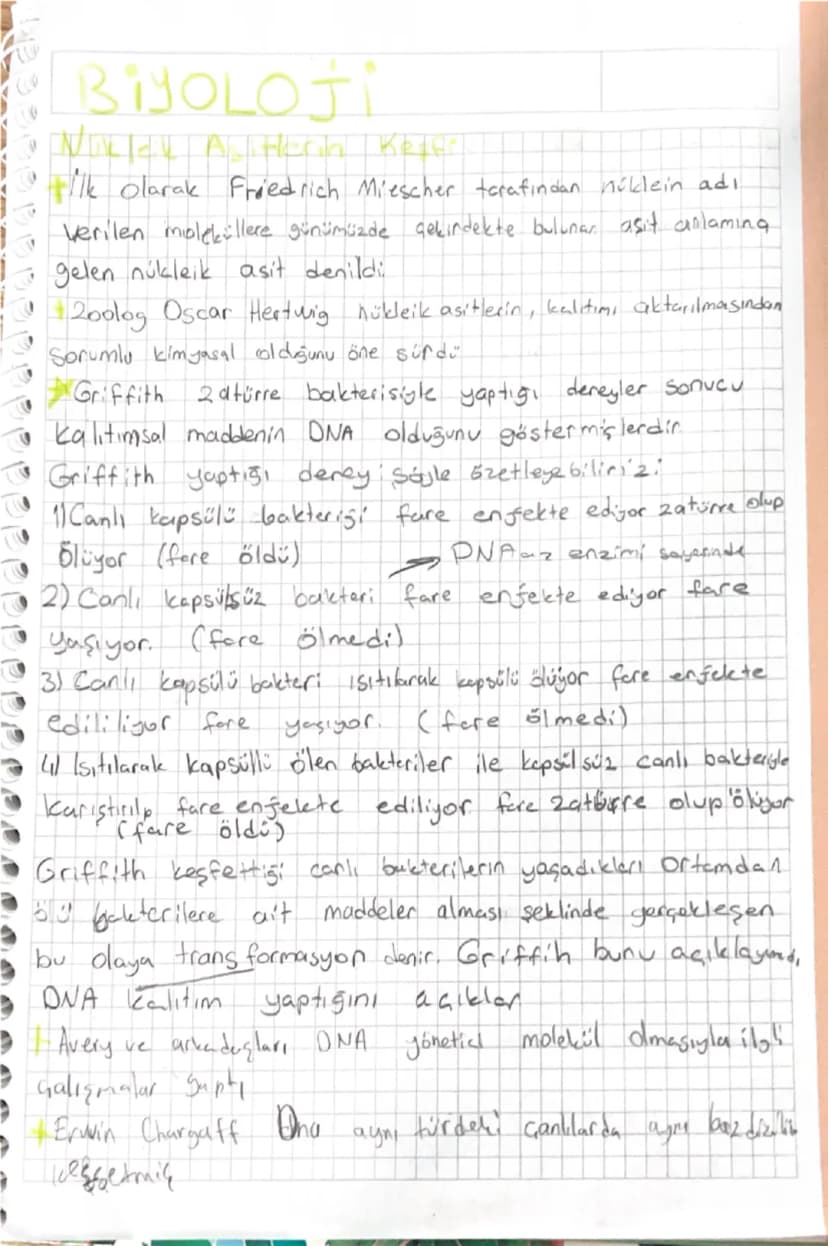 BiYOLOJi
Nükleik Asitlerin Keşfi
+ İlk olarak Friedrich Miescher tarafından nüklein adı
verilen moleküllere günümüzde çekirdekte bulunan asit anlamına
gelen nükleik asit denildi.
+ Zoolog Oscar Hertwig nükleik asitlerin, kalıtımı aktarılmasından
sorumlu kimyasal olduğunu öne sürdü
Griffith zatürre bakterisiyle yaptığı deneyler sonucu
kalıtımsal maddenin DNA olduğunu göstermişlerdir
Griffith yaptığı deneyi şöyle özetleyebiliriz:
1) Canlı kapsülü bakterisi fare enfekte ediyor zatürre olup
ölüyor (fare öldü) → DNAaz enzimi sayesinde
2) Canlı kapsülsüz bakteri fare enfekte ediyor fare
yaşıyor. (fare ölmedi)
3) Canlı kapsülü bakteri ısıtılarak kapsülü ölüyor fare enfekte
edililiyor fare yaşıyor. (fare ölmedi)
4) Isıtılarak kapsüllü ölen bakteriler ile kapsülsüz canlı bakteriyle
karıştırılp fare enfekte ediliyor fare zatürre olup ölüyor
(fare öldü)
Griffith keşfettiği canlı bakterilerin yaşadıkları ortamdan
ölü bakterilere ait maddeler alması şeklinde gerçekleşen
bu olaya transformasyon denir. Griffih bunu açıklayınca,
DNA kalıtım yaptığını açıklar
+ Avery ve arkadaşları DNA yönetici molekül olmasıyla ilgili
çalışmalar yaptı
+ Erwin Chargaff Dna aynı türdeki canlılarda aynı baz dizilib
keşfetmiş